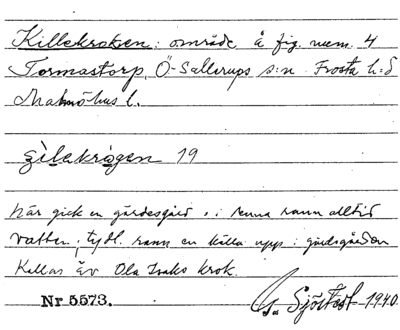 Killekroken: område å fig. num. 4
Tormastorp, Ö-Sallerups s:n Frosta h:d
Malmöhus l.
gìlekrògen 19
Här gick en gärdesgård, i renna rann alltid
vatten; tydl. rann en källa upp i gärdsgården
Kallas äv Ola Isaks krok.
Nr 5573. Sjöstedt 1940